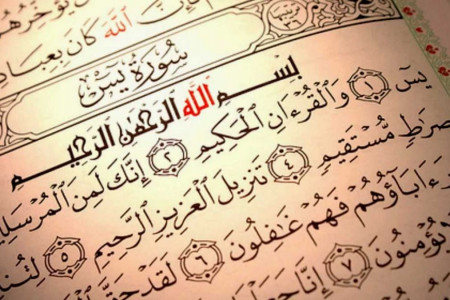 يُؤَخِّرُهُمْ
فَإِنَّ ٱللَّهَ كَانَ بِعِبَا
سُورَةُ يسٓ
بِسْمِ ٱللَّهِ ٱلرَّحْمَٰنِ ٱلرَّحِيمِ
يسٓ ١ وَٱلْقُرْءَانِ ٱلْحَكِيمِ ٢ إِنَّكَ لَمِنَ ٱلْمُرْسَلِ
صِرَٰطٍ مُّسْتَقِيمٍ ٤ تَنزِيلَ ٱلْعَزِيزِ ٱلرَّحِيمِ ٥ لِتُن
ءَابَآؤُهُمْ فَهُمْ غَٰفِلُونَ ٦ لَقَدْ حَقَّ
يُؤْمِنُونَ ٧ إِنَّا جَعَلْ